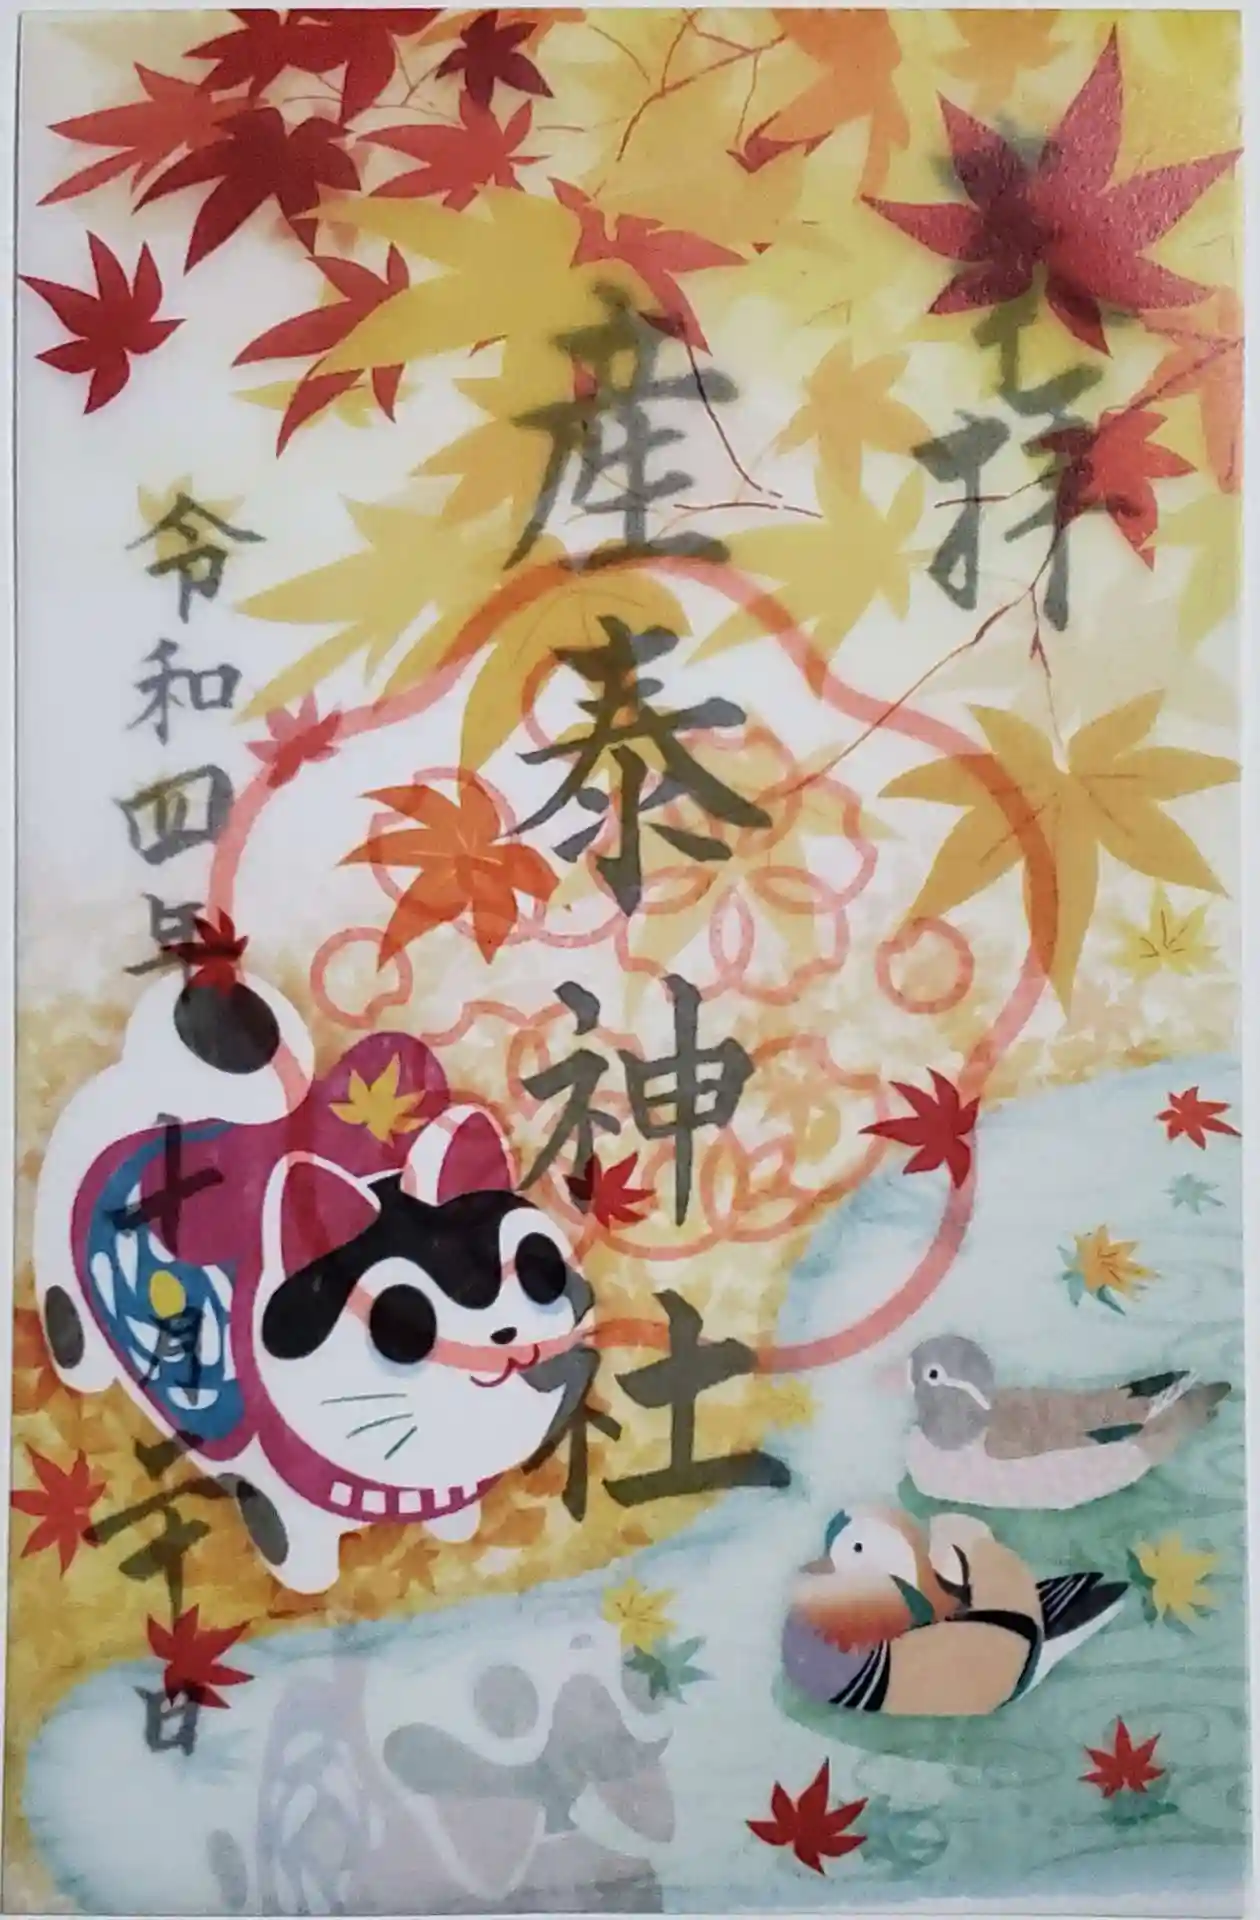 奉拝
産泰神社
令和四年十月二十日